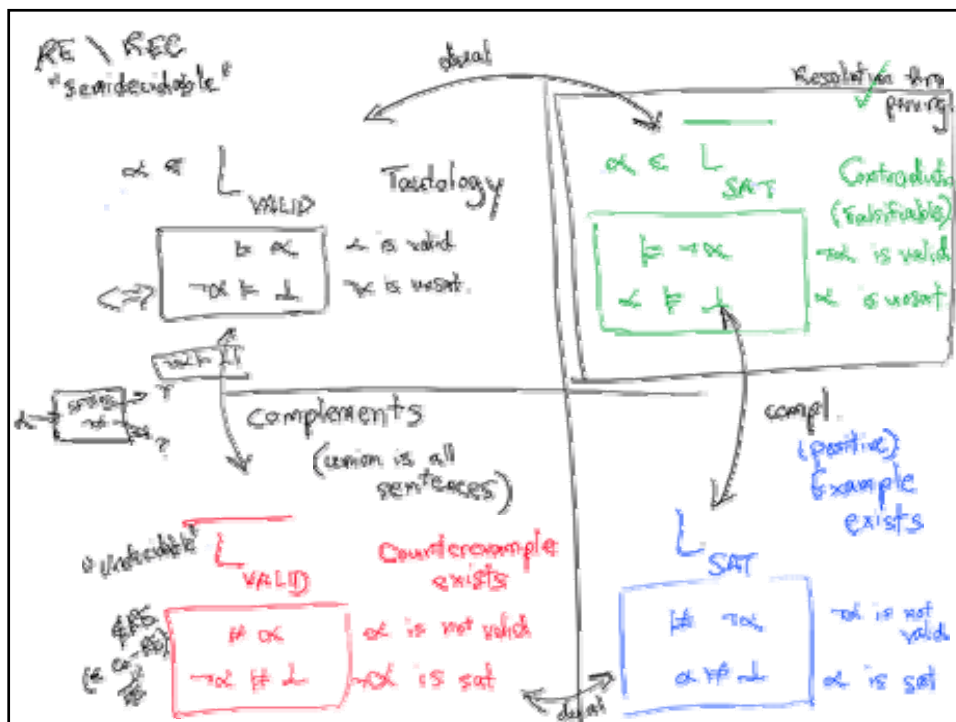 RE \ REC
"semidecidable"
dual
Resolution thm
proving
α ∈ L VALID
Tautology
⊨ α
α is valid
¬α ⊨ ⊥
¬α is unsat.
⟺
α ∈ L SAT
(Falsifiable)
⊨ ¬α
¬α is valid
α ⊨ ⊥
α is unsat.
α
?
complements
(union is all
sentences)
compl.
(positive)
Example
exists
"Undecidable"
L VALID
Counterexample
exists
⊭ α
α is not valid
¬α ⊭ ⊥
¬α is sat
L SAT
⊭ ¬α
¬α is not
valid
α ⊭ ⊥
α is sat
dual